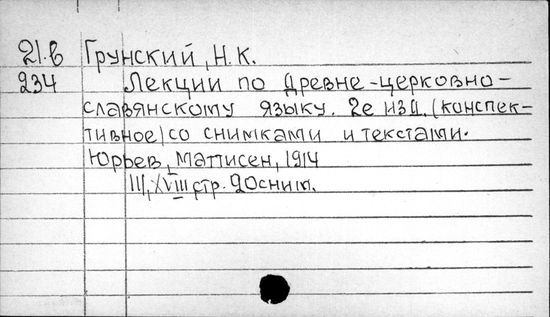 21.в Грунский, Н.К.
234 Лекции по древне-церковно-
славянскому языку. 2е изд. (конспек-
тивное) со снимками и текстами.
Юрьев, Матисен, 1914
III, XVIII стр. 20 сним.